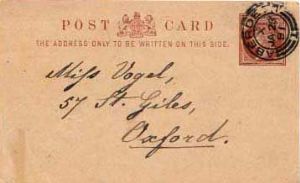 POST CARD
THE ADDRESS ONLY TO BE WRITTEN ON THIS SIDE.
ABERDEEN
Miss Vogel,
57 St. Giles,
Oxford.